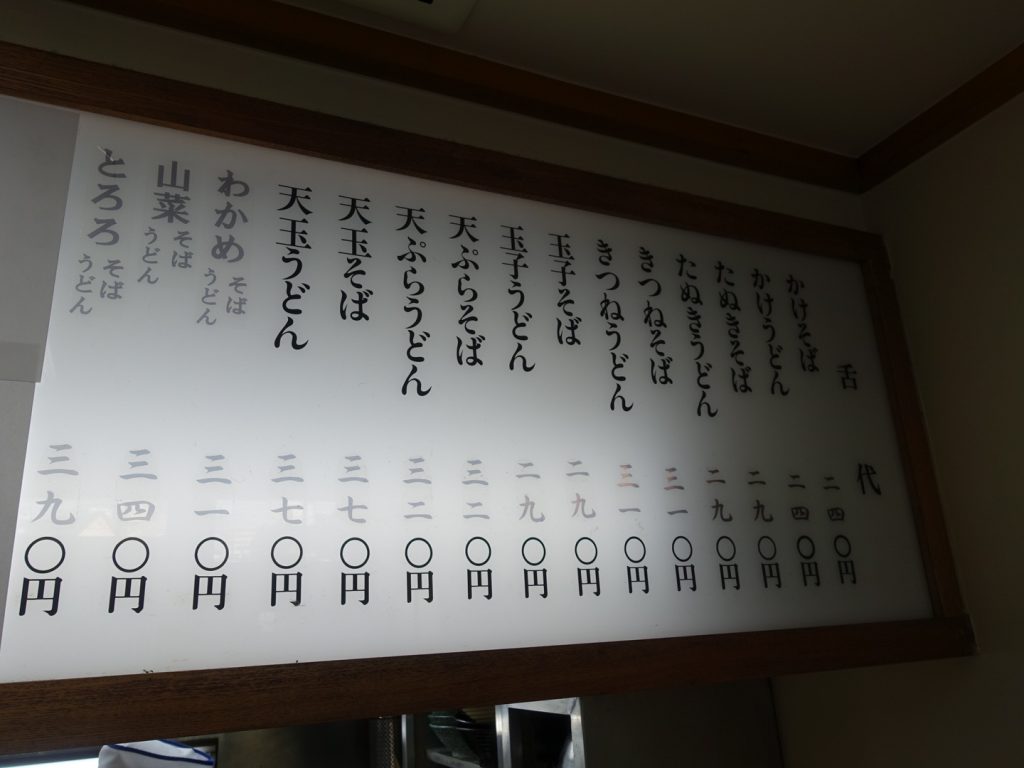 舌代
かけそば 二四〇円
かけうどん 二四〇円
たぬきそば 二九〇円
たぬきうどん 二九〇円
きつねそば 三一〇円
きつねうどん 三一〇円
玉子そば 二九〇円
玉子うどん 二九〇円
天ぷらそば 三二〇円
天ぷらうどん 三二〇円
天玉そば 三七〇円
天玉うどん 三七〇円
わかめ そば うどん 三一〇円
山菜 そば うどん 三四〇円
とろろ そば うどん 三九〇円